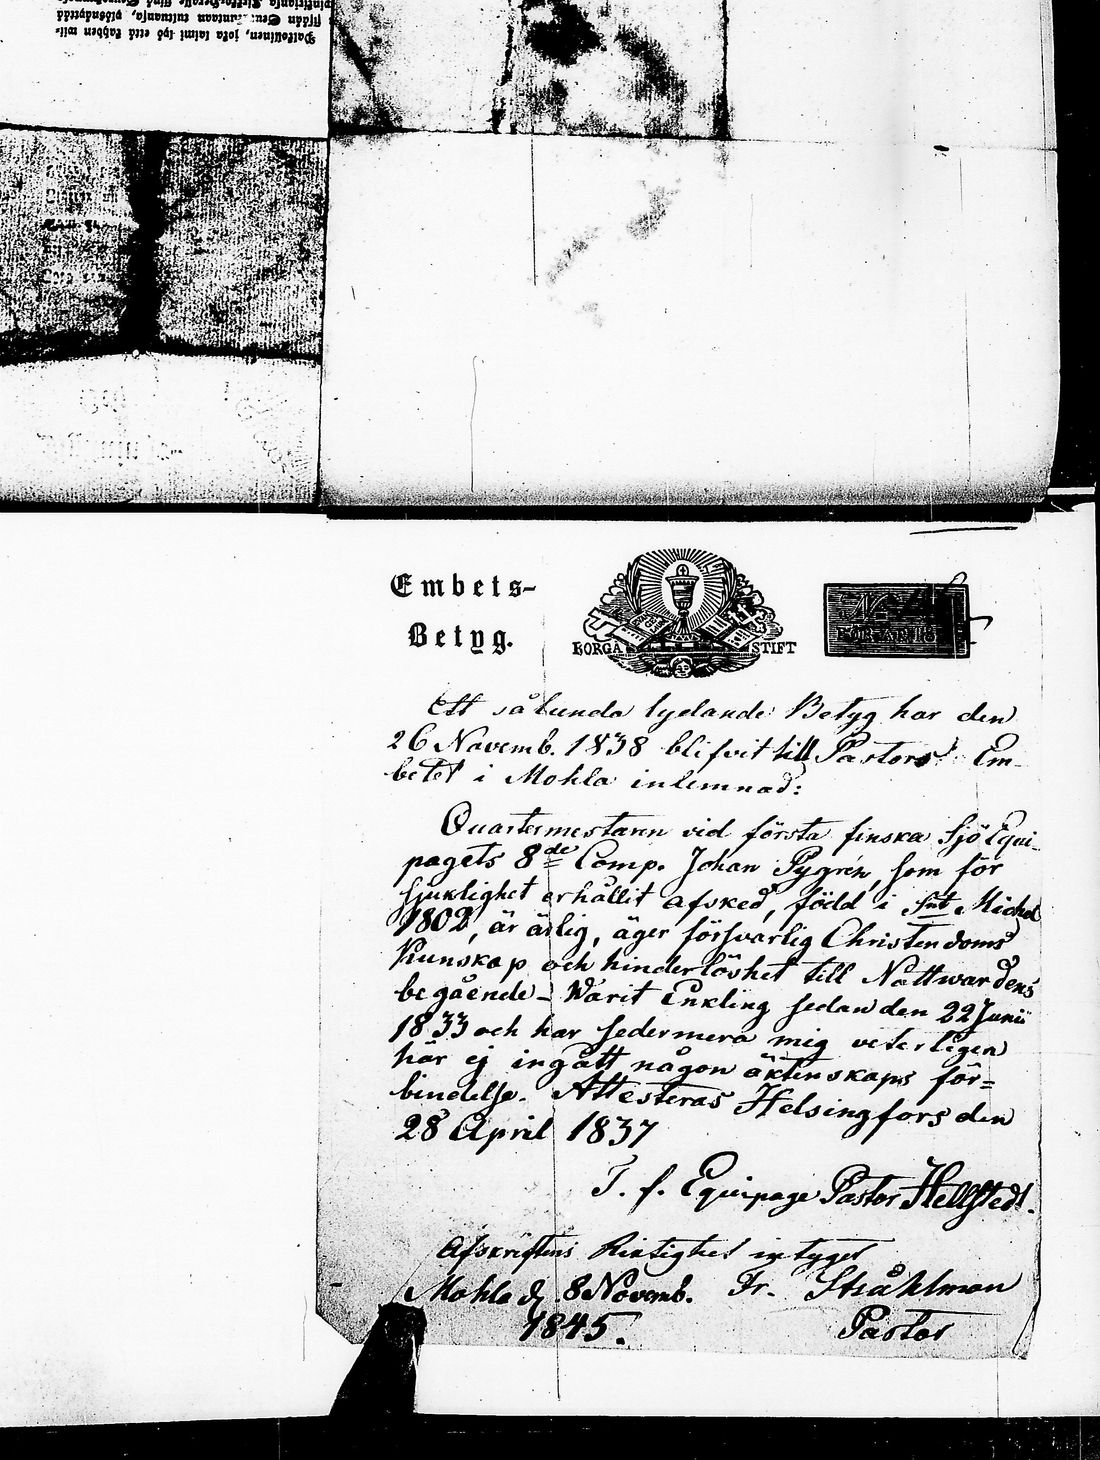 Embets-
Betyg.
BORGÅ STIFT
Ett så lunda lydande Betyg har den
26 Novemb. 1838 blifvit till Pastors Em-
betet i Mohla inlemnad:
Quartermestaren vid första finska Sjö Equi-
pagets 8de Comp. Johan Pygrén, som för
sjuklighet erhållit afsked, född i Snt Michel
1802, är ärlig, äger försvarlig Christendoms
Kunskap och hinderlöshet till Nattwardens
begående - Warit Enkling sedan den 22 Junii
1833 och har sedermera mig veterligen
här ej ingått någon äktenskaps för=
bindelse. Attesteras Helsingfors den
28 April 1837
T. f. Equipage Pastor Hellstedt.
Afskriftens Riktighet intygat
Mohla d. 8 Novemb. Fr. Stråhlman
1845. Pastor